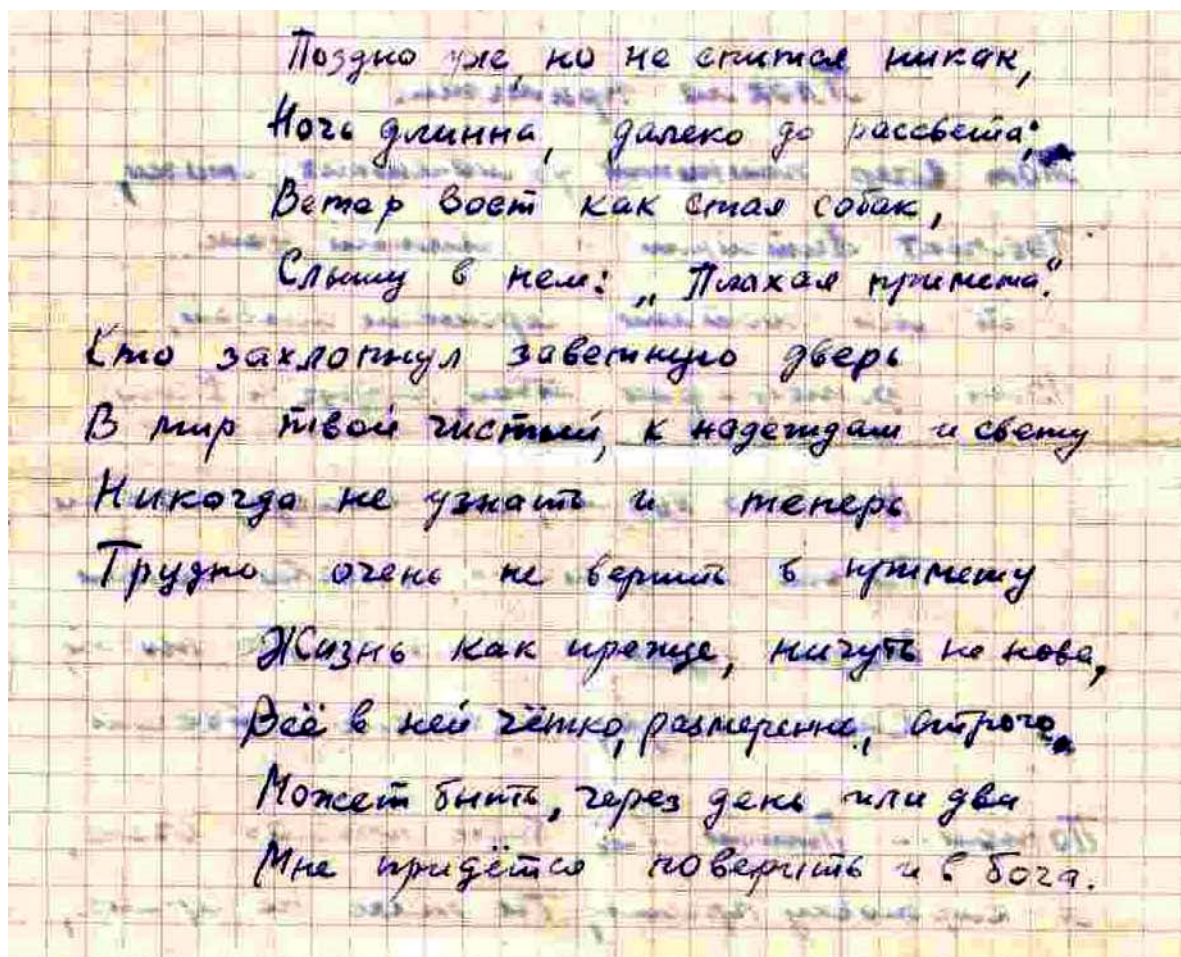 Поздно уже, но не спится никак,
Ночь длинна, далеко до рассвета;
Ветер воет как стая собак,
Слышу в нем: „Плохая примета".
Кто захлопнул заветную дверь
В мир твой чистый, к надеждам и свету
Никогда не узнать и теперь
Трудно очень не верить в примету
Жизнь как прежде, ничуть не нова,
Всё в ней чётко, размеренно, строго,
Может быть, через день или два
Мне придётся поверить и в бога.